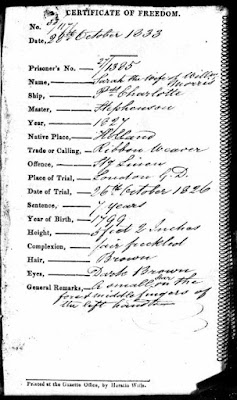 CERTIFICATE OF FREEDOM.
Date, 28th October 1833
Prisoner's No. 27/1385
Name, Sarah the Wife of Willm Morris
Ship, Pss Charlotte
Master, Stephenson
Year, 1827
Native Place,
Trade or Calling, Ribbon Weaver
Offence, Linen
Place of Trial, London G.D.
Date of Trial, 26th October 1826
Sentence, 7 Years
Year of Birth, 1799
Height, 2 Inches
Complexion, fair freckled
Hair, Brown
Eyes, Dark Brown
General Remarks, A small Scar on the
fore & middle fingers of
the left hand
Printed at the Gazette Office, by Horatio Wills.